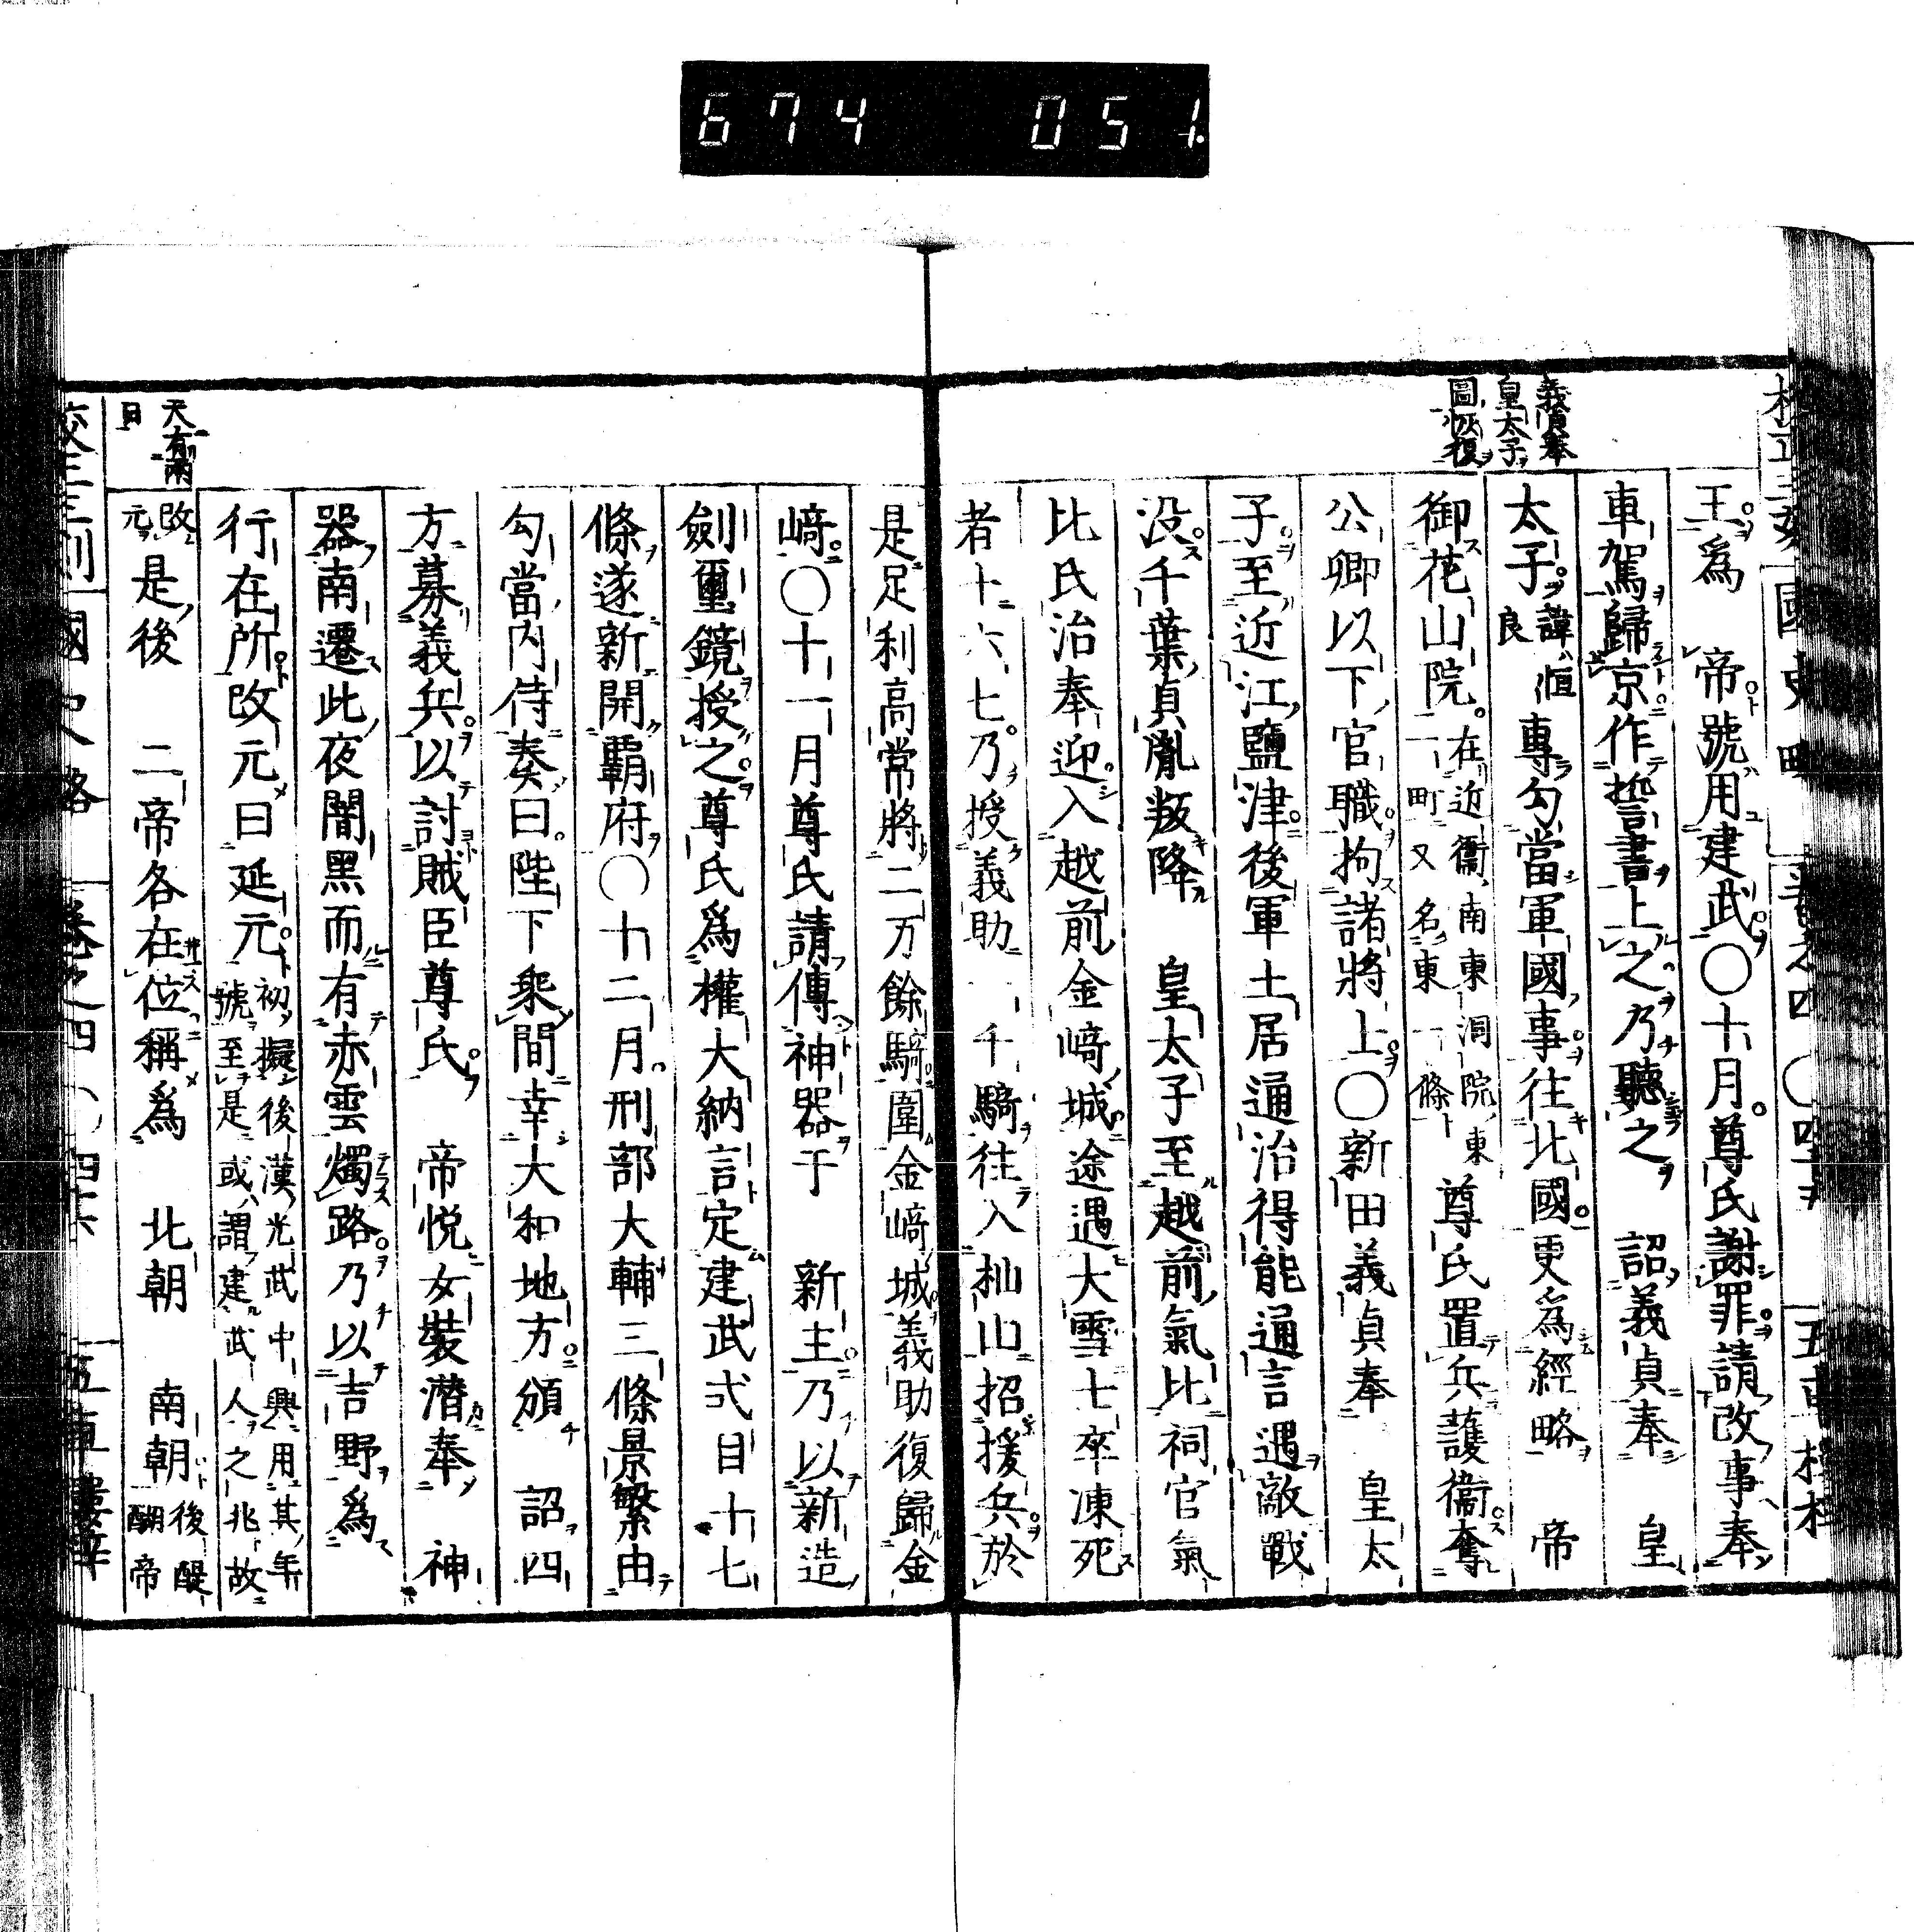 674 051
義貞奉
皇太子
圖恢復
王爲 帝號用建武〇十月尊氏謝罪請改事奉
車駕歸京作誓書上之乃聽之 詔義貞奉 皇
太子諱恒良專勾當軍國事往北國更爲經略 帝
御花山院在近衞南東洞院東二町又名東一條尊氏置兵護衞奪
公卿以下官職拘諸將士〇新田義貞奉 皇太
子至近江鹽津後軍土居通治得能通言遇敵戰
没千葉貞胤叛降 皇太子至越前氣比祠官氣
比氏治奉迎入越前金﨑城途遇大雪士卒凍死
者十六七乃授義助一千騎往入杣山招援兵於
是足利高常將二万餘騎圍金﨑城義助復歸金
﨑〇十一月尊氏請傳神器于 新主乃以新造
劍璽鏡授之尊氏爲權大納言定建武式目十七
條遂新開覇府〇十二月刑部大輔三條景繁由
勾當内侍奏曰陛下乘間幸大和地方頒 詔四
方募義兵以討賊臣尊氏 帝悦女裝潜奉 神
器南遷此夜闇黑而有赤雲燭路乃以吉野爲
行在所改元曰延元初擬後漢光武中興用其年號至是或謂建武人之兆故
改元是後 二帝各在位稱爲 北朝 南朝後醍醐帝
天有兩
日